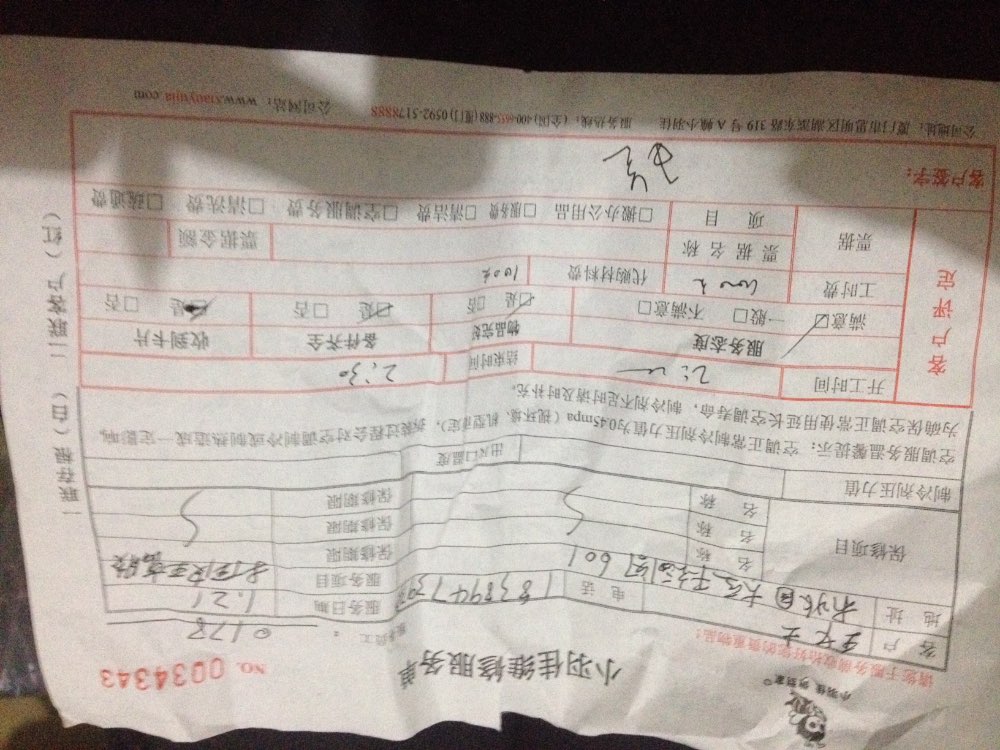 小羽佳 到到家®
小羽佳维修服务单
NO. 0034343
请您于服务前收拾好您的贵重物品！
服务员工： 0178
客户 王女士 电话 服务日期 1.21
地址 601 服务项目
保修项目 名称 保修期限
名称 保修期限
名称 保修期限
制冷剂压力值 出风口温度
空调服务温馨提示：空调正常制冷剂压力值为0.45mpa（视环境、机型而定），拆装过程会对空调制冷或制热造成一定影响，
为确保空调正常使用延长空调寿命，制冷剂不足时请及时补充。
客户评定
开工时间 结束时间 2:30
服务态度 物品完好 备件齐全 收到卡片
满意☑ 一般□ 不满意□ ☑是 □否 ☑是 □否 ☑是 □否
工时费 代购材料费 100元
票据 票据名称 票据金额
项目 □搬办公用品 □服务费 □清洁费 □空调服务费 □清洗费 □疏通费
客户签字：
公司地址：厦门市思明区湖滨东路 319 号 A 幢小羽佳 服务热线：（全国）400-655-888（厦门）0592-5178888 公司网站：www.xiaoyujia.com
一联存根（白） 二联客户（红）